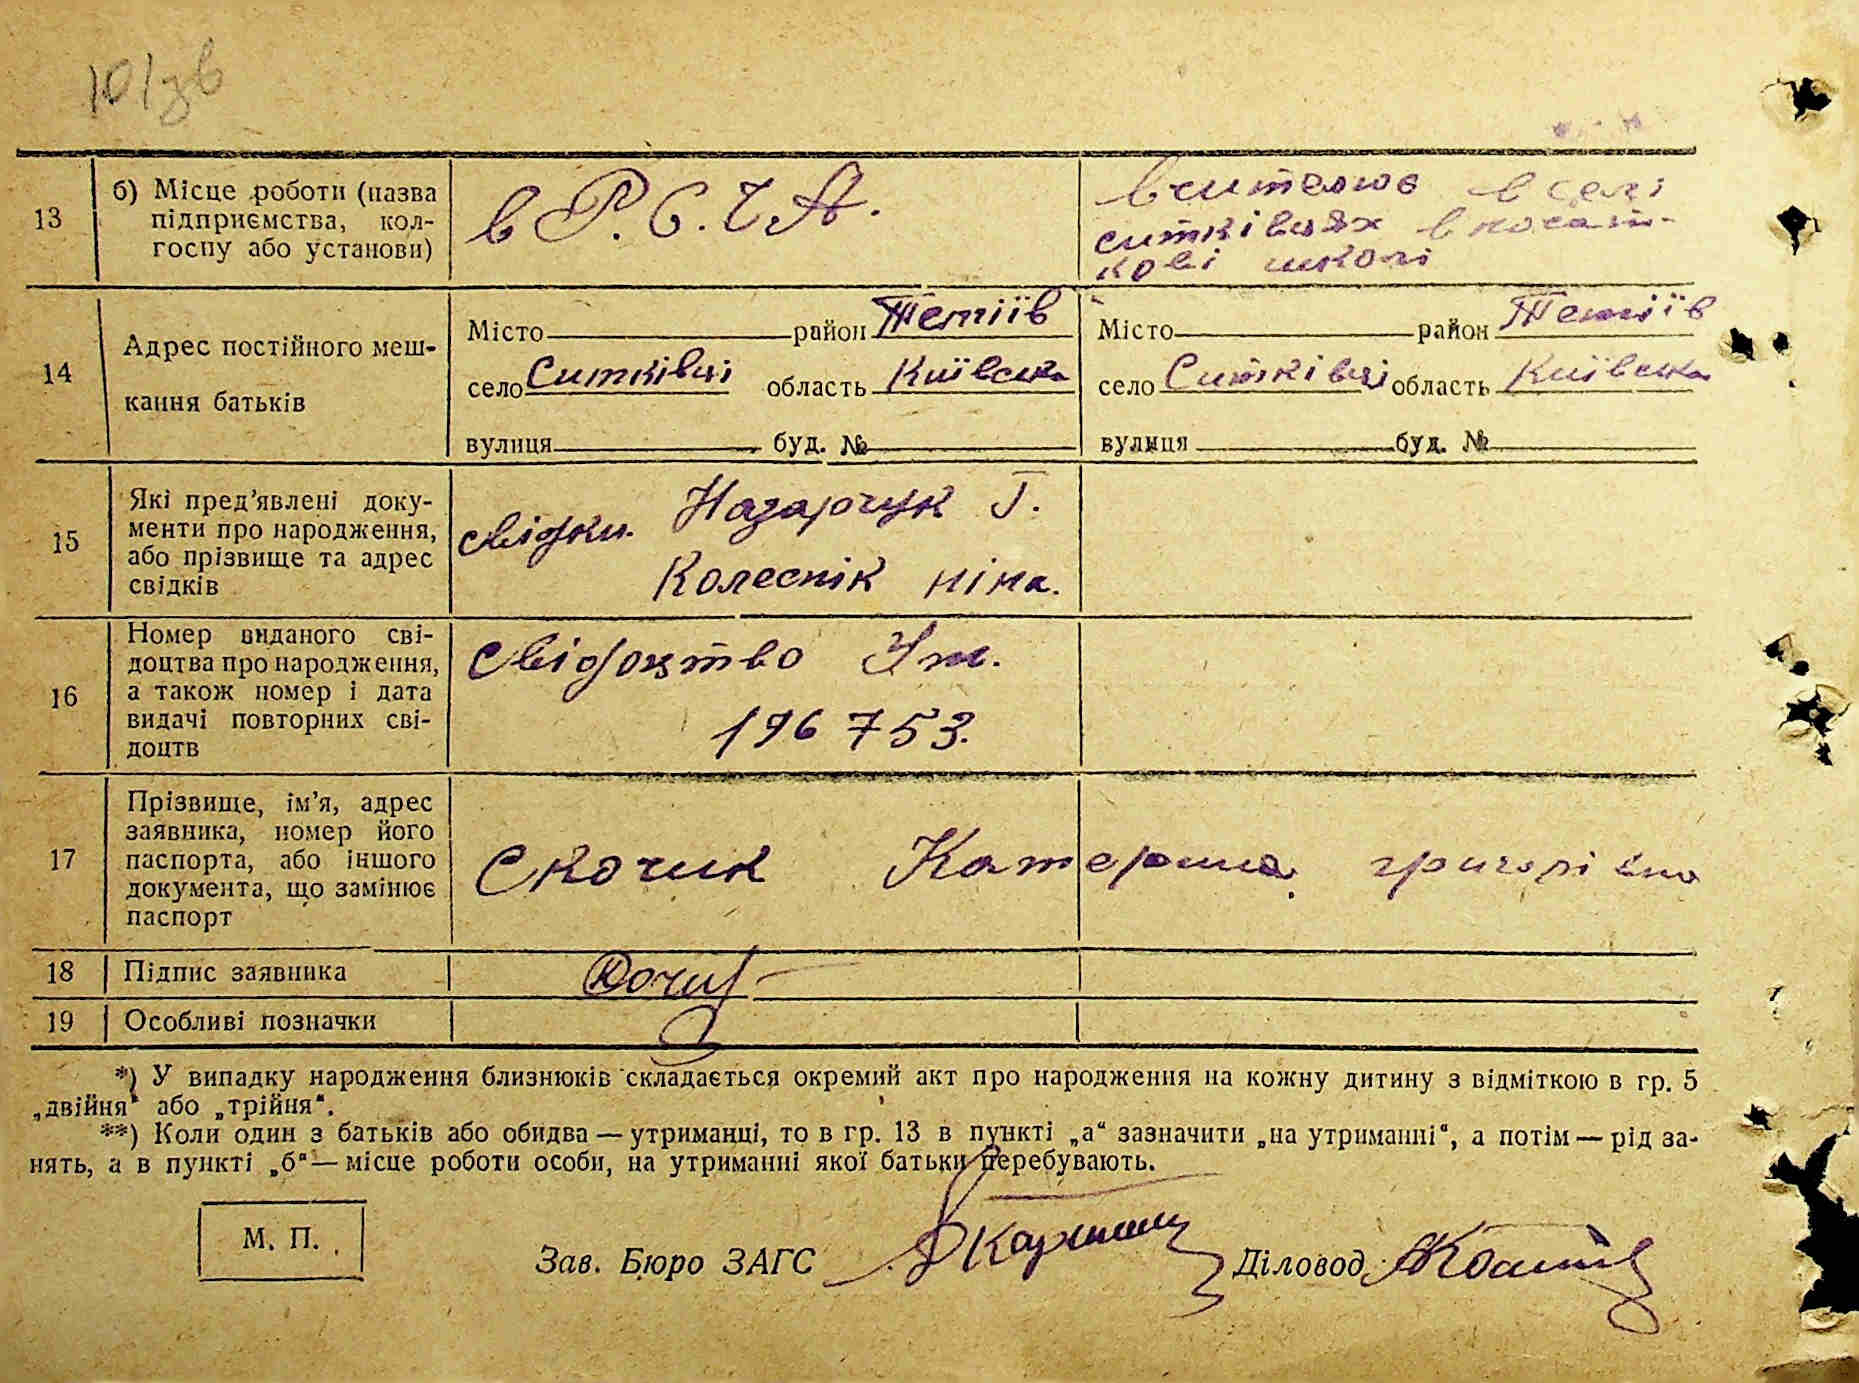 13
б) Місце роботи (назва
підприємства, кол-
госпу або установи)
в Р.С.Ч.А.
вчителює в селі
ситківцях в початі-
кові школі
14
Адрес постійного меш-
кання батьків
Місто район Тетіїв
село Ситківці область Київська
вулиця буд. №
Місто район Тетіїв
село Ситківці область Київська
вулиця буд. №
15
Які пред’явлені доку-
менти про народження,
або прізвище та адрес
свідків
свідки. Назарчук Г.
Колеснік ніна.
16
Номер виданого сві-
доцтва про народження,
а також номер і дата
видачі повторних сві-
доцтв
свідоцтво
196753.
17
Прізвище, ім’я, адрес
заявника, номер його
паспорта, або іншого
документа, що замінює
паспорт
Скочик Катерина григорівна
18 Підпис заявника
19 Особливі позначки
*) У випадку народження близнюків складається окремий акт про народження на кожну дитину з відміткою в гр. 5
„двійня“ або „трійня“.
**) Коли один з батьків або обидва — утриманці, то в гр. 13 в пункті „а“ зазначити „на утриманні“, а потім — рід за-
нять, а в пункті „б“ — місце роботи особи, на утриманні якої батьки перебувають.
М. П.
Зав. Бюро ЗАГС
Діловод